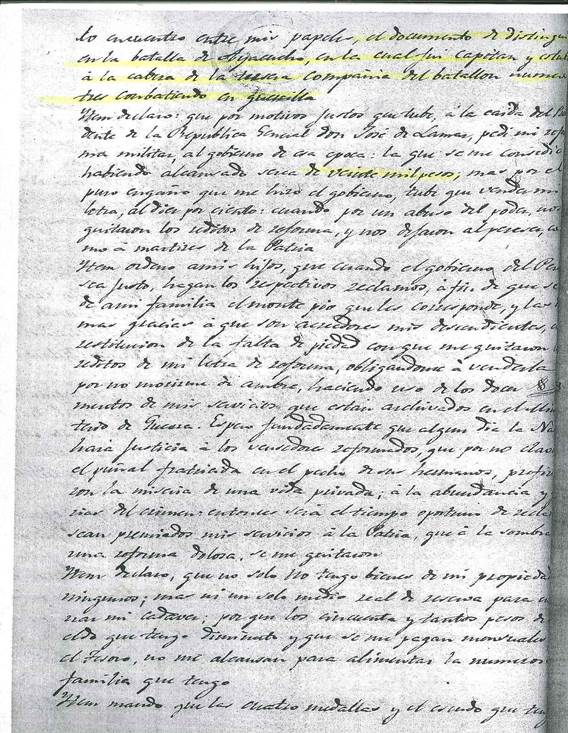 lo encuentro entre mis papeles, el documento de distingui
en la batalla de Ayacucho, en la cual fui Capitan y
à la cabeza de la tersera Compañia del batallon numero
tres combatiendo en guerrilla
Item declaro: que por motivos justos que tube, à la caida del Presi
dente de la Republica General don José de Lamar, pedi mi refor
ma militar, al gobierno de esa epoca: la que se me consedio
habiendo alcansado serca de veinte mil pesos, mas por el
puro engaño que me hizo el gobierno, tube que vender mi
letra, al diez por ciento: cuando por un abuso del poder, nos
quitaron los reditos de reforma, y nos dejaron al pereser, co
mo à martires de la Patria
Item ordeno a mis hijos, que cuando el gobierno del Peru
sea justo, hagan los respectivos reclamos, à fin de que se
de a mi familia el monte pio que les corresponde, y las
mas gracias à que son acreedores mis desendientes, 
restitucion de la falta de piedad con que me quitaron
reditos de mi letra de reforma, obligandome à venderla
por no morirme de ambre, haciendo uso de los docu
mentos de mis servicios que estan archivados en el Minis
terio de Guerra. Espero fundadamente que algun dia la Na
hara justicia à los vensedores reformados, que por no clavar
el puñal fratricida en el pecho de sus hermanos, prefi
con la miseria de una vida privada; à la abundancia y
del crimen: entonces será el tiempo oportuno de
sean premiados mis servicios à la Patria, que à la sombra
una reforma dolosa, se me quitaron
Item declaro, que no solo no tengo bienes de mi propiedad
ningunos; mas ni un solo medio real de reserva para
mi cadaver; por que los cincuenta y tantos pesos de
que tengo diminuto y que se me pagan mensuales
el Tesoro, no me alcansan para alimentar la numerosa
familia que tengo
Item mando que las cuatro medallas y el escudo que teng